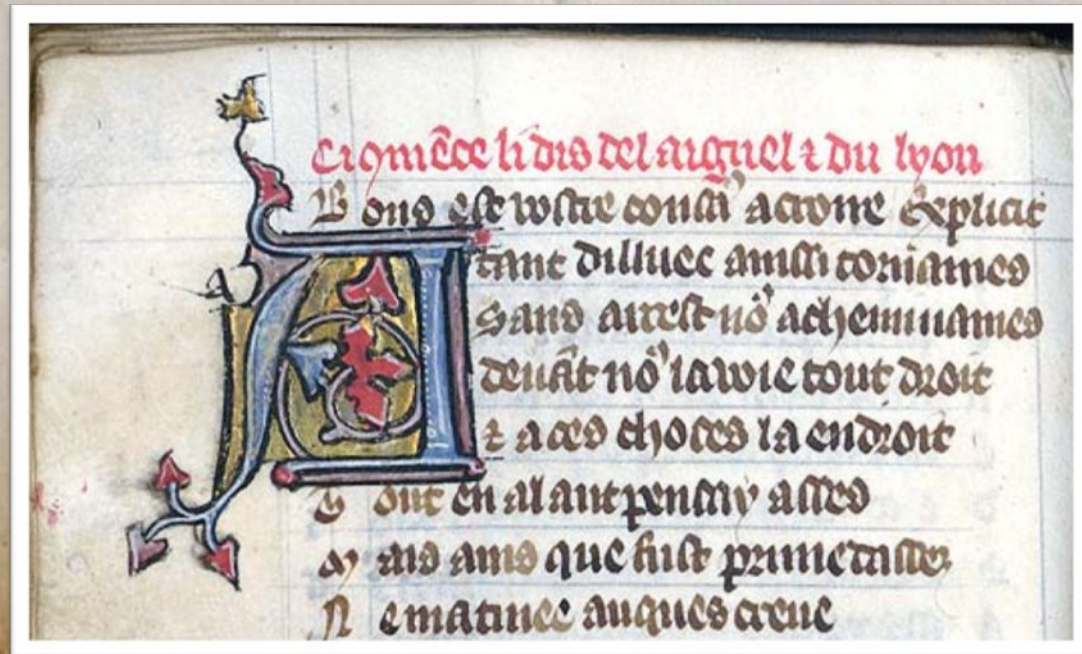 Ci 9mēce li dis del aiguel ⁊ du lyon
Bons est vostre acroire explicit
Atant dilluec ainssi tornames
Sans arrest nõ acheminames
deuāt nõ la voie tout droit
⁊ a ces choces la endroit
Tout en alant pensay asses
Mais ains que fust prime dasses
Ne matinee auques creue